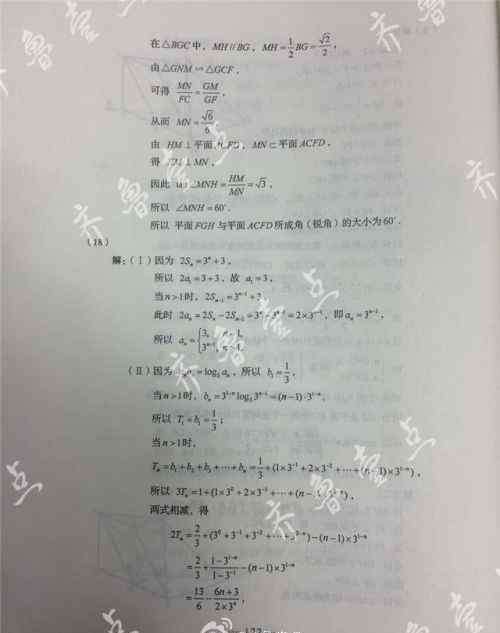 在△BGC中，MH∥BG，MH=1/2 BG=√2/2，
由△GNM∽△GCF，
可得 MN/FC=GM/GF，
从而 MN=√6/6．
由 HM⊥平面ACFD，MN⊂平面ACFD，
得 HM⊥MN，
因此 tan∠MNH=HM/MN=√3，
所以 ∠MNH=60°．
所以 平面FGH与平面ACFD所成角（锐角）的大小为60°．
(18)
解：(Ⅰ)因为 2Sₙ=3ⁿ+3，
所以 2a₁=3+3，故 a₁=3，
当n>1时，2Sₙ₋₁=3ⁿ⁻¹+3，
此时 2aₙ=2Sₙ-2Sₙ₋₁=3ⁿ-3ⁿ⁻¹=2×3ⁿ⁻¹，即aₙ=3ⁿ⁻¹，
所以 aₙ={3, n=1, 3ⁿ⁻¹, n>1.
(Ⅱ)因为 aₙbₙ=log₃aₙ，所以 b₁=1/3，
当n>1时，bₙ=3¹⁻ⁿlog₃3ⁿ⁻¹=(n-1)·3¹⁻ⁿ．
所以 T₁=b₁=1/3；
当n>1时，
Tₙ=b₁+b₂+b₃+⋯+bₙ=1/3+(1×3⁻¹+2×3⁻²+⋯+(n-1)×3¹⁻ⁿ)，
所以 3Tₙ=1+(1×3⁰+2×3⁻¹+⋯+(n-1)×3²⁻ⁿ)，
两式相减，得
2Tₙ=2/3+(3⁰+3⁻¹+3⁻²+⋯+3²⁻ⁿ)-(n-1)×3¹⁻ⁿ
=2/3+(1-3¹⁻ⁿ)/(1-3⁻¹)-(n-1)×3¹⁻ⁿ
=13/6-(6n+3)/(2×3ⁿ)，
齐鲁壹点